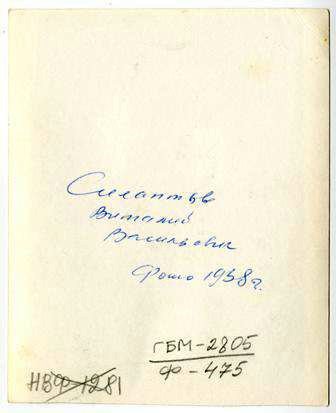 Силантьев
Виталий
Васильевич
Фото 1958 г.
ГБМ-2805
Ф-475
НВФ 1281